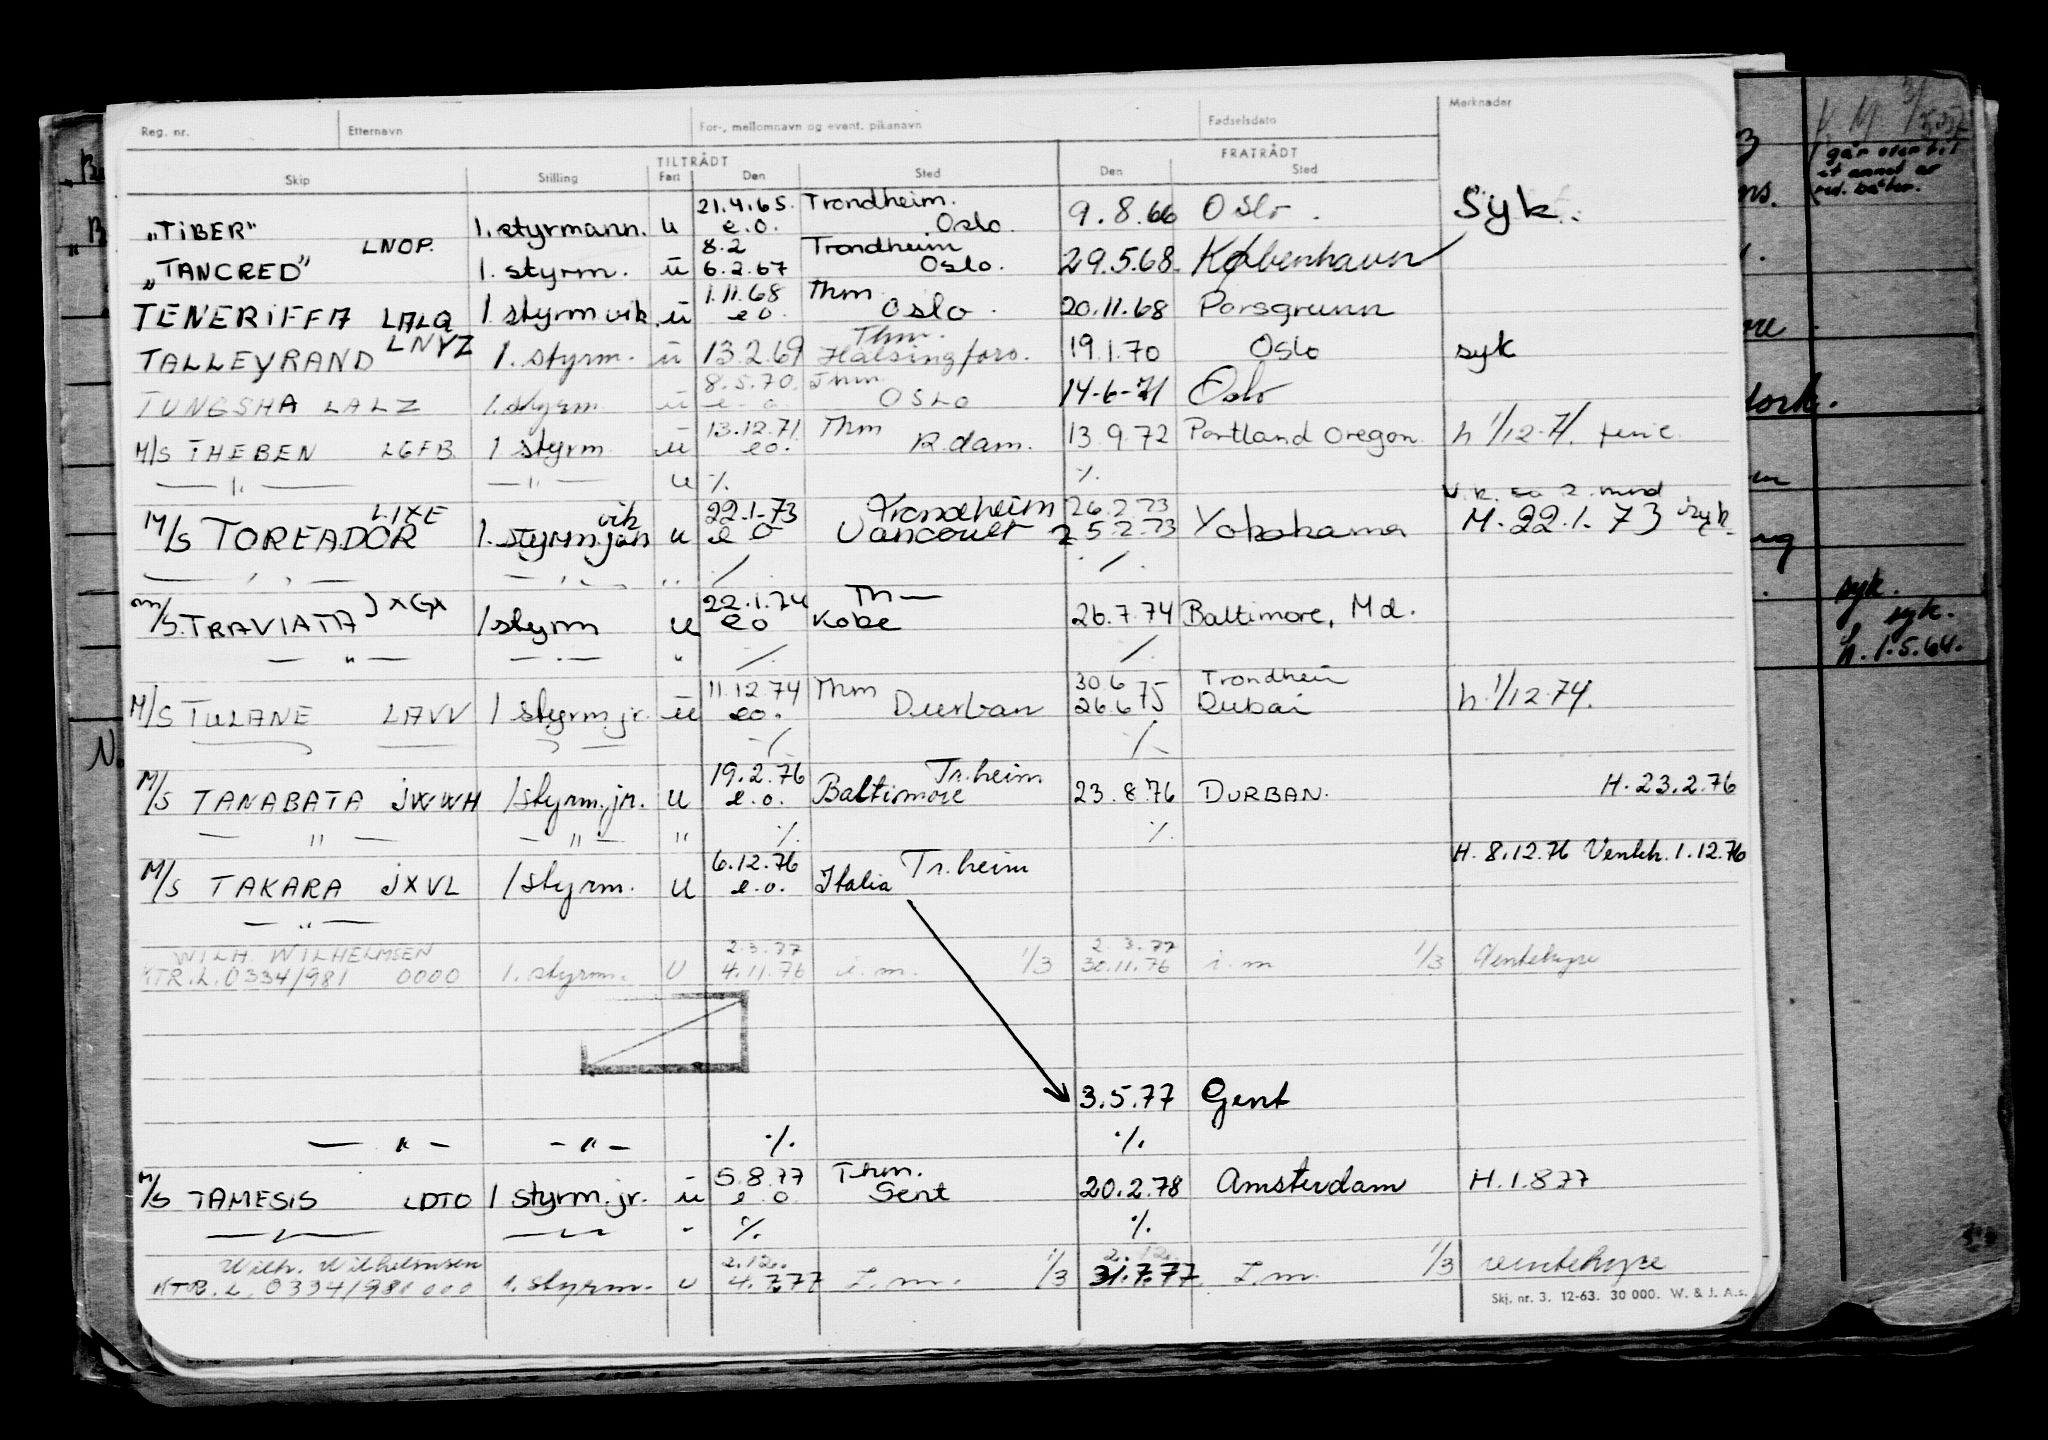 Reg. nr. Etternavn For-, mellomnavn og event. pikenavn Fødselsdato Merknader
TILTRÅDT FRATRÅDT
Skip Stilling Fart Den Sted Den Sted
21.4.65. Trondheim.
"TIBER" 1. styrmann. u e.o. Oslo. 9.8.66 Oslo. Syk.
LNOP. 8.2 Trondheim
"TANCRED" 1. styrm. u 6.2.67 Oslo. 29.5.68. København
1.11.68 Thm
TENERIFFA LALQ 1. styrm vik. u eo. Oslo. 20.11.68 Porsgrunn
LNYZ Thm.
TALLEYRAND 1. styrm. u 13.2.69 Halsingfors. 19.1.70 Oslo syk
8.5.70. Thm
TUNGSHA LALZ 1. styrm u e-o OSLO 14-6-71 Oslo
13.12.71. Thm
M/S THEBEN LGFB 1 styrm u eo. R.dam. 13.9.72 Portland Oregon. h 1/12-71. ferie.
— " — — " — u % %
LIXE vik 22.1-73 Trondheim 26.2.73
M/S TOREADOR 1. styrmjun u e o 25.2.73 Yokohama M. 22.1.73 syk.
— " — — " — " % %
JXGX 22.1.74 Th—
M/S. TRAVIATA 1 styrm u eo Kobe 26.7.74 Baltimore, Md.
— " — — " — " % %
11.12.74 Thm 30.6 Trondheim
M/S TULANE LAVV 1 styrm jr. u eo. Durban 26.6 75 Dubai h. 1/12-74.
% %
19.2.76 Tr.heim
M/S TANABATA JWWH 1 styrm. jr. u e.o. Baltimore 23.8.76 DURBAN. H. 23.2.76
— " — — " — " % %
6.12.76 Tr.heim H. 8.12.76 Venteh. 1.12.76
M/S TAKARA JXVL 1 styrm. u e.o. Italia
— " —
WILH. WILHELMSEN 2.3.77 2.3.77
KTR.L.0334/981 0000 1. styrm. U 4.11.76 i.m. 1/3 30.11.76 i.m 1/3 Ventehyre
3.5.77 Gent
— " — — " — % %
5.8.77 Thm.
M/S TAMESIS LDTO 1 styrm. jr. u e.o. Gent 20.2.78 Amsterdam H. 1.8 77
— " — — " — - % %
Wilh. Wilhelmsen 2.12. 2.12.
KTR. L. 0334/981 000 1. styrm. u 4.7.77 I.m. 1/3 31.7.77 I.m. 1/3 ventehyre
Skj. nr. 3. 12-63. 30 000. W. & J. A.s.
syk.
syk.
h. 1.5.64.